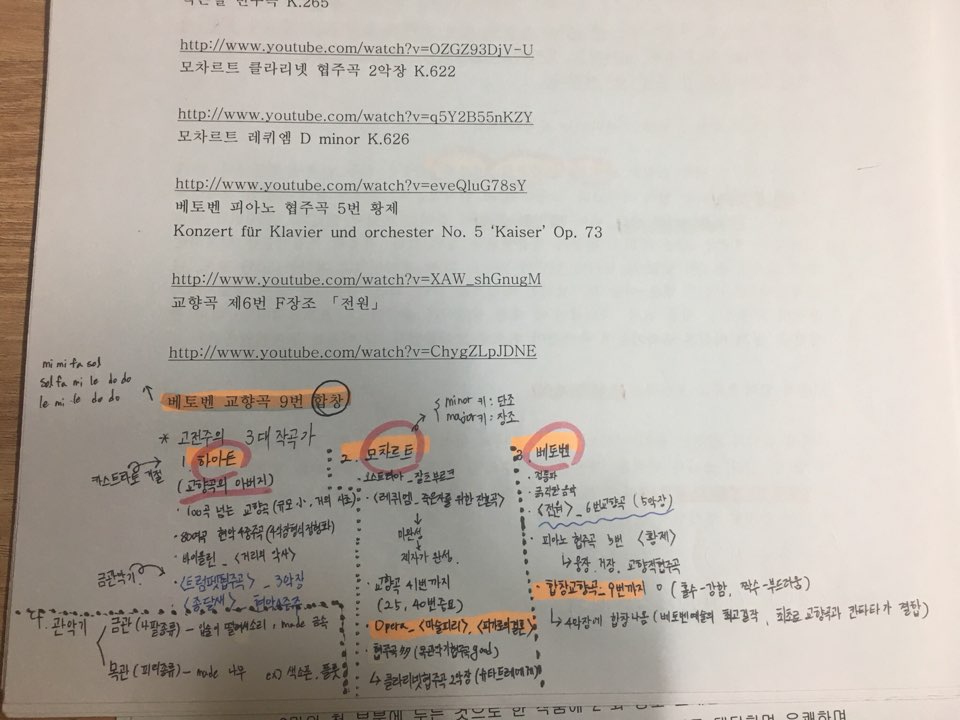 변주곡 K.265
http://www.youtube.com/watch?v=OZGZ93DjV-U
모차르트 클라리넷 협주곡 2악장 K.622
http://www.youtube.com/watch?v=q5Y2B55nKZY
모차르트 레퀴엠 D minor K.626
http://www.youtube.com/watch?v=eveQluG78sY
베토벤 피아노 협주곡 5번 황제
Konzert für Klavier und orchester No. 5 ‘Kaiser’ Op. 73
http://www.youtube.com/watch?v=XAW_shGnugM
교향곡 제6번 F장조 「전원」
http://www.youtube.com/watch?v=ChygZLpJDNE
mi mi fa sol
sol fa mi le do do
le mi le do do
베토벤 교향곡 9번 합창
minor 키 : 단조
major 키 : 장조
* 고전주의 3대 작곡가
1. 하이든
카스트라토 거절
(교향곡의 아버지)
· 100곡 넘는 교향곡 (규모 小, 거의 시초)
· 80여곡 현악 4중주곡 (4악장형식정형화)
· 바이올린 <거리의 악사>
금관악기
· <트럼펫협주곡> 3악장
<종달새> 현악4중주
2. 모차르트
· 오스트리아_잘츠부르크
· <레퀴엠_죽은자를 위한 진혼곡>
↓
미완성
↓
제자가 완성.
· 교향곡 41번까지
(25, 40번중요)
Opera_<마술피리>, <피가로의결혼>
· 협주곡 (목관악기협주곡 good)
↳ 클라리넷협주곡 2악장
3. 베토벤
· <전원>_6번교향곡 (5악장)
· 피아노 협주곡 5번 <황제>
↳ 웅장, 거장, 교향적협주곡
· 합창교향곡_9번까지 (홀수-강함, 짝수-부드러움)
↳ 4악장에 합창나옴 (베토벤예술의 최고걸작, 최초로 교향곡과 칸타타가 결합)
4. 관악기
금관 (나팔종류) - 입술이 떨어서소리, made 금속
목관 (피리종류) - made 나무 ex) 색소폰, 플룻